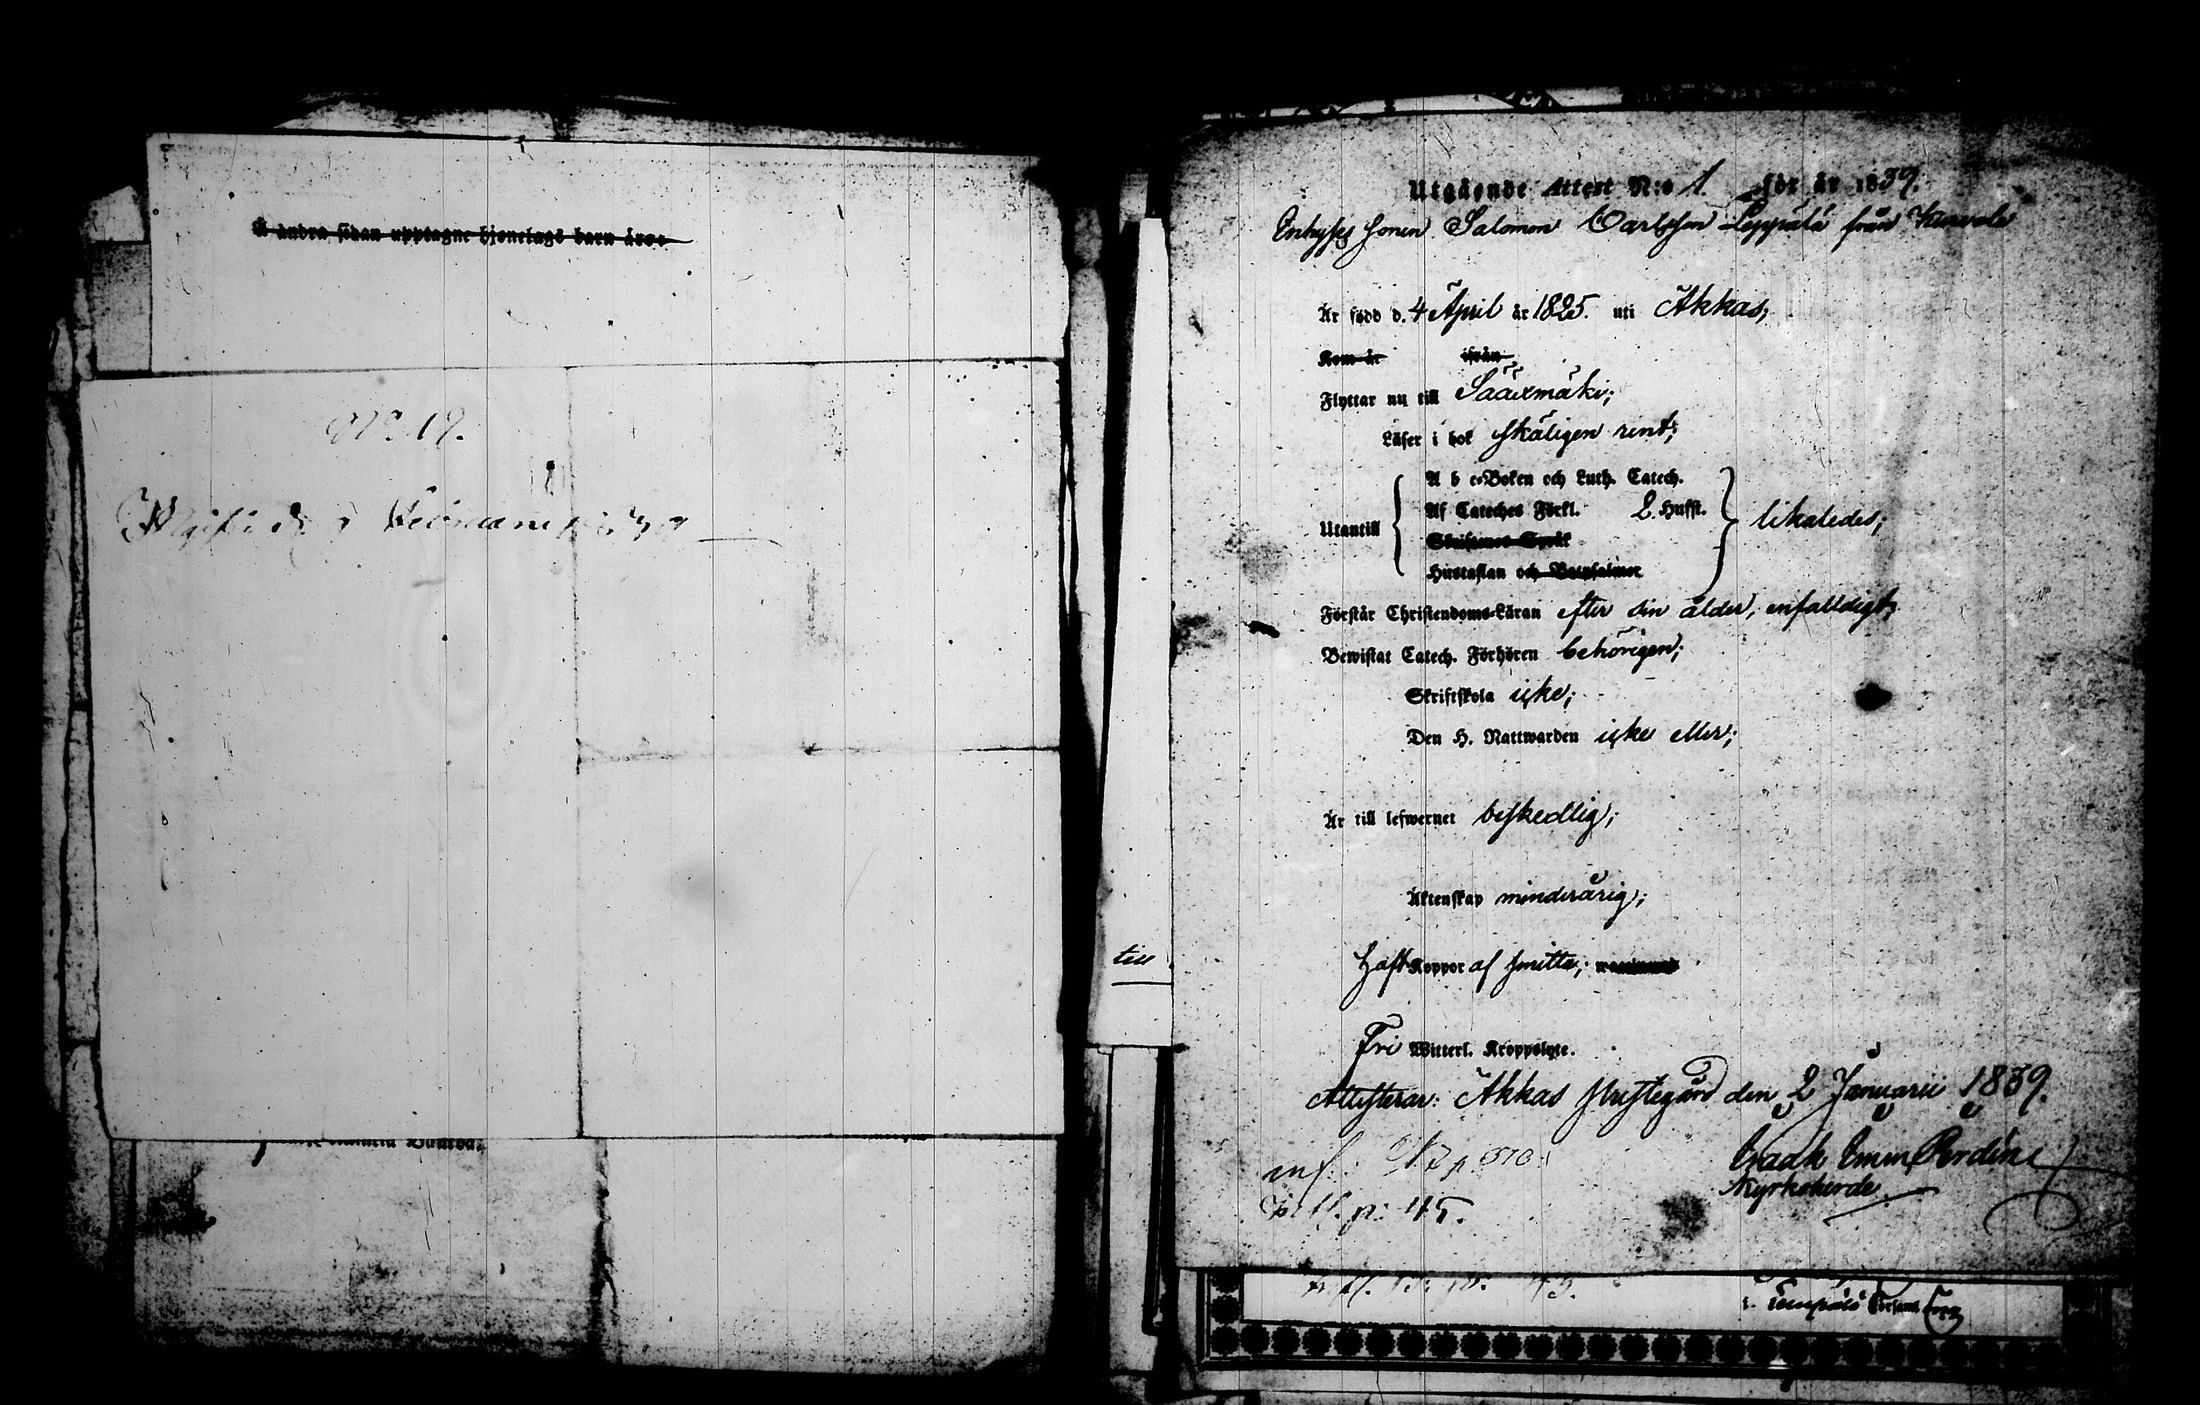 Å andra sidan upptagne hjonelags barn äro:
No 19.
till
Utgående Attest N:o 1. för år 1839.
Enkyses sonen Salomon Carlsson Leppälä från
Är född d. 4 April år 1825. uti Akkas;
Kom år ifrån
Flyttar nu till Sääxmäki;
Läser i bok skäligen rent;
Utantill
A b c-Boken och Luth. Catech.
Af Cateches Förkl. 2. Hufst.
Skriftenes Språk
Hustaflan och Botpsalmer
likaledes;
Förstår Christendoms-Läran efter sin ålder, enfalldigt;
Bewistat Catech. Förhören behörigen;
Skriftskola icke;
Den H. Nattwarden icke eller;
Är till lefwernet beskedlig;
Äktenskap minderårig;
Haft Koppor af smitta;
Fri Witterl. Kroppslyte.
Attesterar: Akkas Prestegård den 2 Januarii 1839.
inf. p. 570.
p. 45.
Kyrkoherde
i Församl.